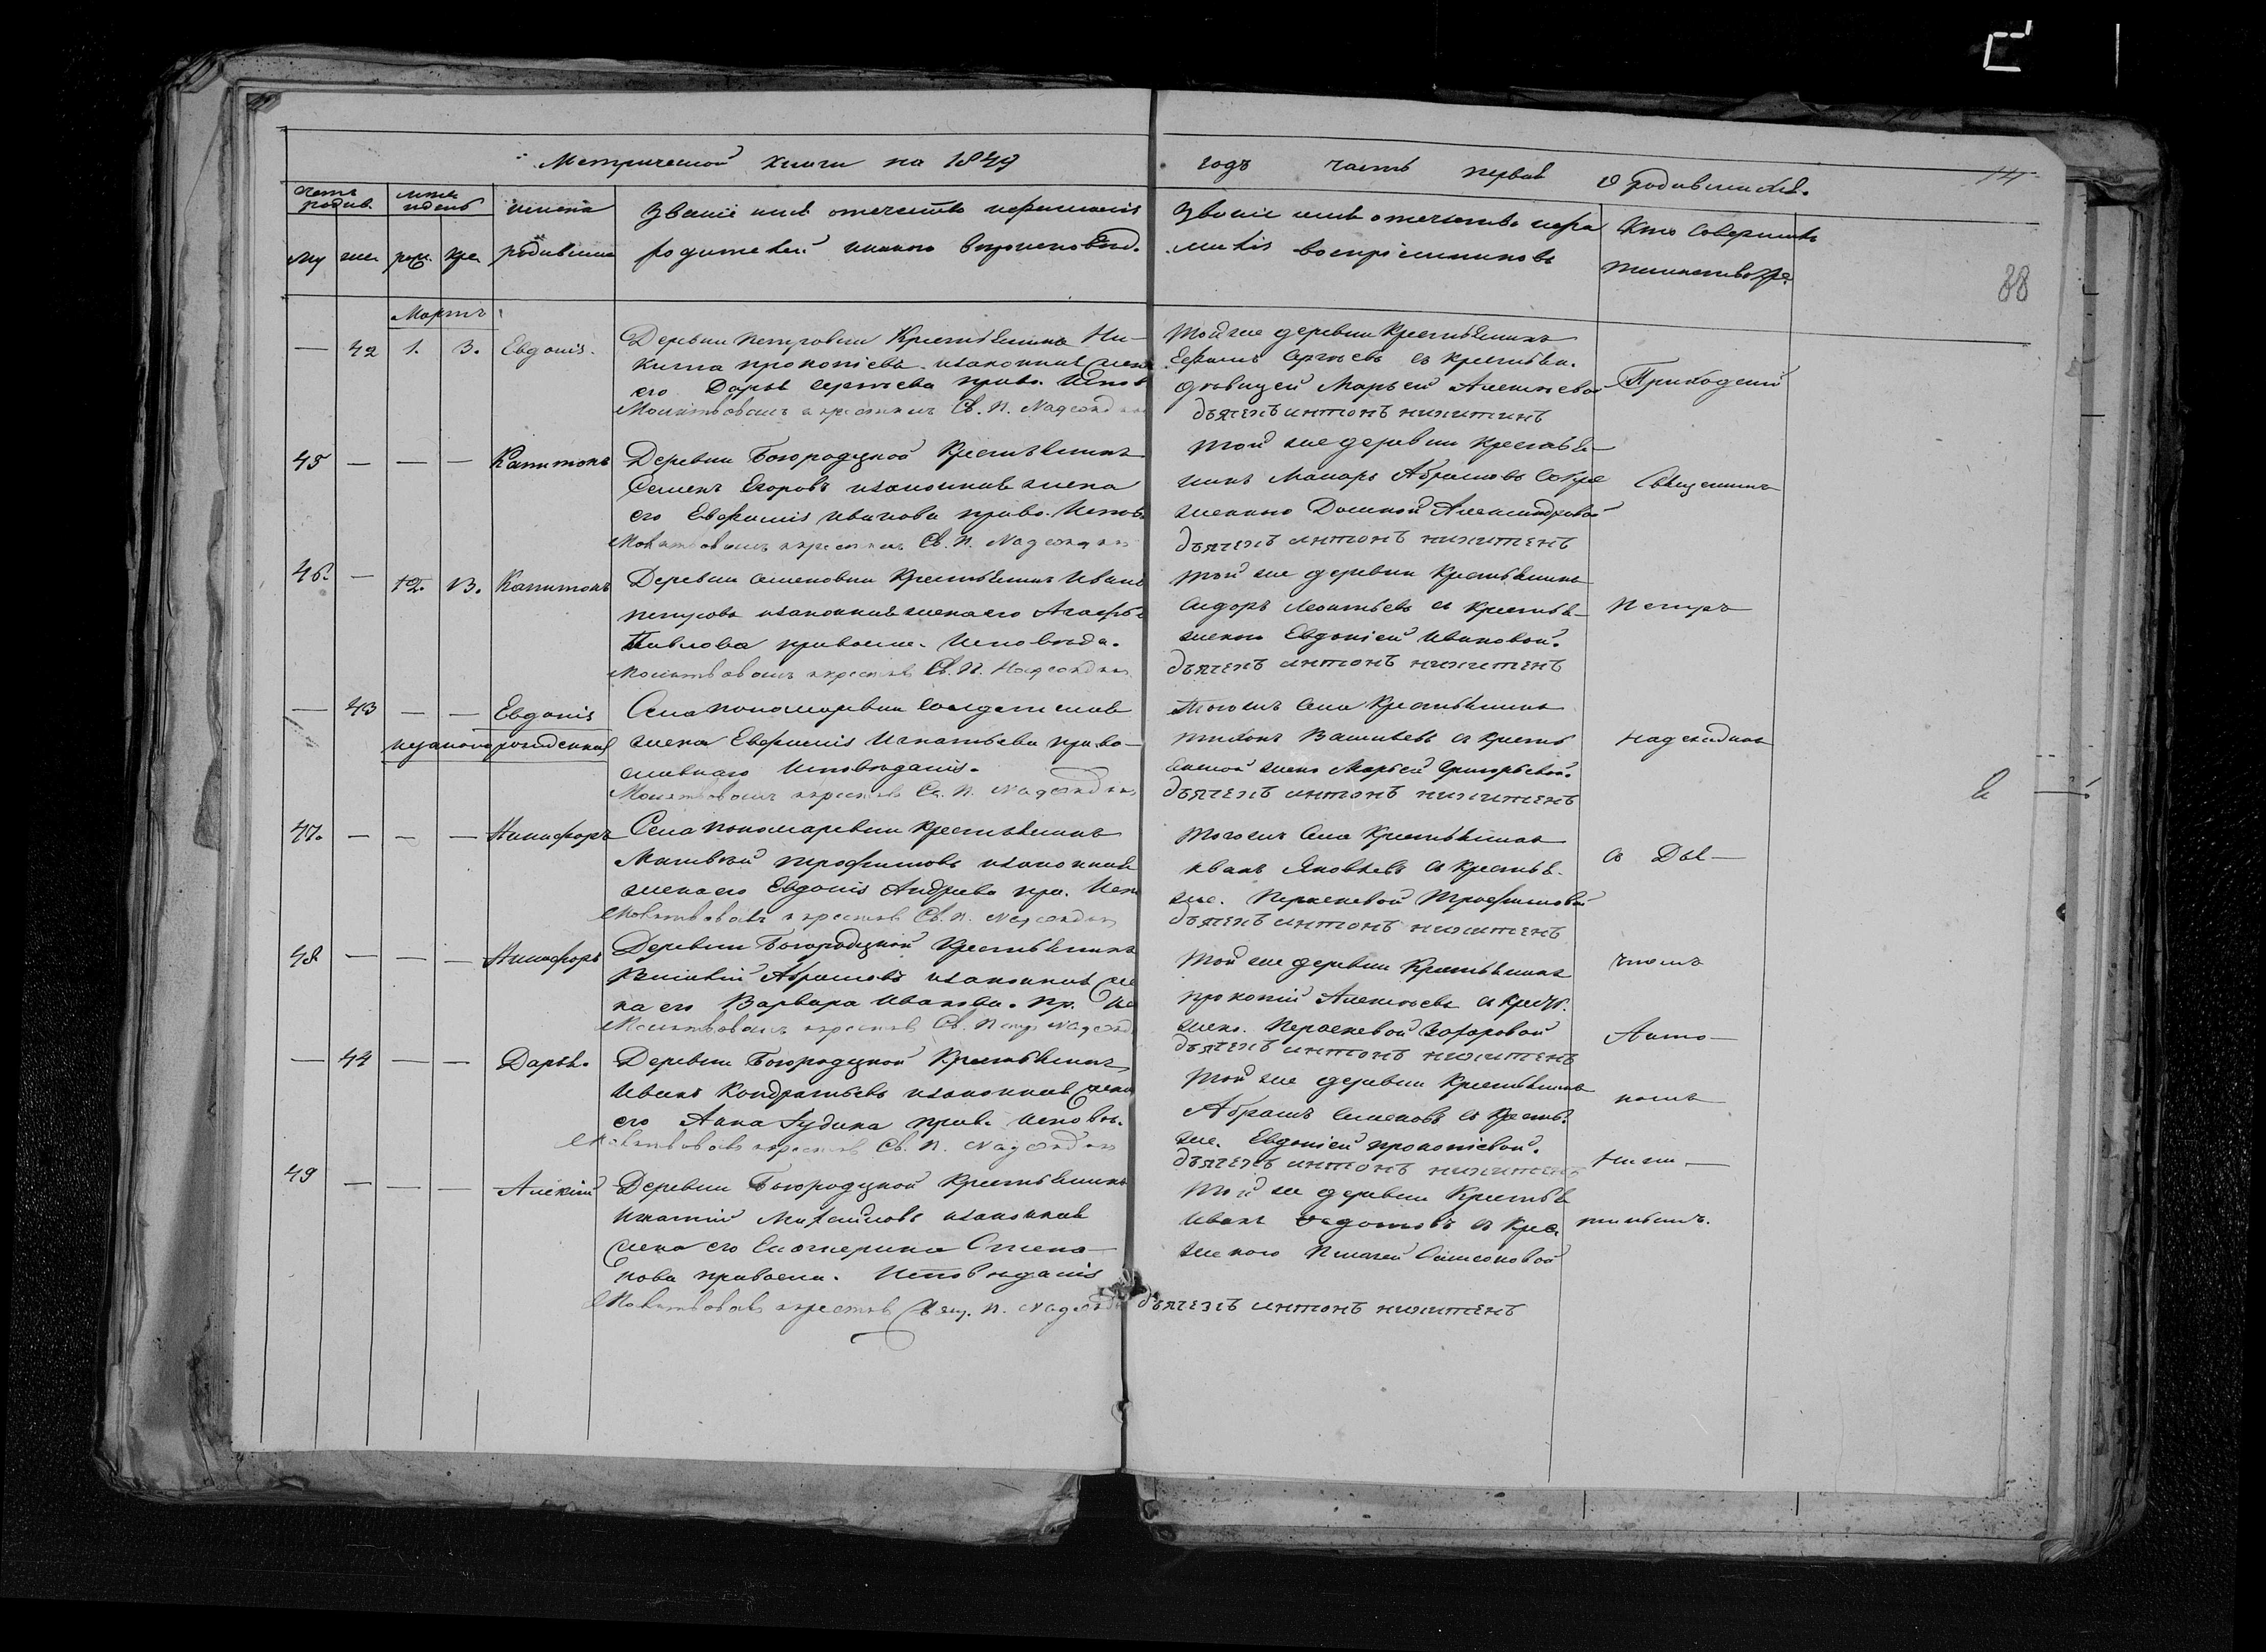 Метрической книги на 1849 годъ часть первая о родившихся.
14
88
счетъ родив. мѣс. и день имена званіе имя отечество и фамилія званіе имя отечество и фа- Кто совершалъ
му же рож. кре. родивших родителей и какого вероисповѣд. милія воспріемниковъ таинство кре.
Мартъ
— 42 1. 3. Евдокія.
Деревни Петровки Крестьянинъ Ни-
кита прокопіевъ и законная жена
его Дарья Сергѣева право. Испов
Молитвовалъ и крестилъ Св. П. Надеждин
Той же деревни Крестьянинъ
Ефимъ Сергѣевъ съ крестьян.
дѣвицей Марьей Алексѣевой
дьячекъ антонъ никитинъ
Приходскій
45 — — — Капитонъ
Деревни Богородцкой Крестьянинъ
Семенъ Егоровъ и законная жена
его Евфимія Иванова право. Испов
Молитвовалъ и крестилъ Св. П. Надеждин
Той же деревни Крестья-
нинъ Макаръ Абрамовъ
женкою Александровой
дьячекъ антонъ никитенъ
Священникъ
46. — 12. 13. Капитонъ
Деревни Семеновки Крестьянинъ Иванъ
и законная жена его Агафья
Павлова правосла. Исповѣда.
Молитвовалъ и крестилъ Св. П. Надеждин
Той же деревни Крестьянинъ
Сидоръ Леонтьевъ съ крестья-
женкою Евдокіей Ивановой.
дьячекъ антонъ никитенъ
Петръ
— 43 — — Евдокія
незаконорожденная
Села пономаревки солдатская
жена Евфимія Игнатьева право-
славнаго Исповѣданія.
Молитвовалъ и крестилъ Св. П. Надеждин
Того жъ села Крестьянинъ
тихонъ Васильевъ съ крестья
янской женкой Марьей Григорьевой.
дьячекъ антонъ никитенъ
Надеждинъ
47. — — — Никифоръ
Села пономаревки крестьянинъ
Матвѣй трофимовъ и законная
жена его Евдокія Андреева пра. Испо
Молитвовалъ и крестилъ Св. П. Надеждин
Того жъ села Крестьянинъ
Иванъ Яковлевъ съ крестья.
же. Парасковой Трофимовой
дьячекъ антонъ никитенъ
съ Дья-
48 — — — Никифоръ
Деревни Богородцкой Крестьянинъ
Абрамовъ и законная же
на его Варвара Иванова. пр. Ис
Молитвовалъ и крестилъ Св. Петр Надежд
Той же деревни Крестьянинъ
прокопій Алексѣевъ съ крест.
женк. Парасковой Захаровой
дьячекъ антонъ никитенъ
чкомъ
— 44 — — Дарья.
Деревни Богородцкой Крестьянинъ
Иванъ Кондратьевъ и законная жена
его Анна Гудина прав. исповѣ.
Молитвовалъ и крестилъ Св. П. Надеждин
Той же деревни Крестьянинъ
Абрамъ Семеновъ съ кресть.
же. Евдокіей прокопіевой.
дьячекъ антонъ никитенъ
Анто-
номъ
49 — — — Алексѣй
Деревни Богородцкой Крестьянинъ
Игнатій Михайловъ и законная
жена его Екатерина Степа-
нова правосла. Исповѣданія
Молитвовалъ и крестилъ Свящ. П. Надежд
Той же деревни Крестья
Иванъ Федотовъ съ крес.
женкою Пелагеей Симеоновой
дьячекъ антонъ никитенъ
Ники-
тинымъ.